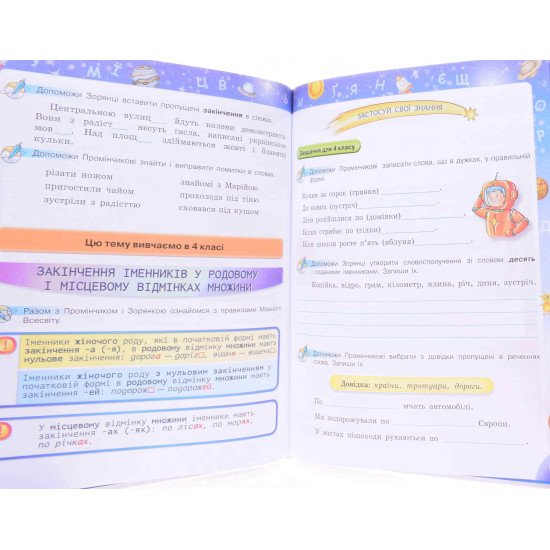 У М І Ц В Ь
Допоможи Зорянці вставити пропущені закінчення в словах.
Центральною вулиц____ йдуть колони демонстрантів.
Вони з радіст____ несуть гасла, написані українською
мов____. Над площ____ здіймаються жовті і блакитні
кульки.
Допоможи Промінчикові знайти і виправити помилки в словах.
різати ножом
пригостили чайом
зустріли з радісттю
знайомі з Марійою
прохолода під тіню
сховався під кущом
Цю тему вивчаємо в 4 класі
ЗАКІНЧЕННЯ ІМЕННИКІВ У РОДОВОМУ
І МІСЦЕВОМУ ВІДМІНКАХ МНОЖИНИ
Разом з Промінчиком і Зорянкою ознайомся з правилами Мовного
Всесвіту.
Іменники жіночого роду, які в початковій формі мають
закінчення -а (-я), в родовому відмінку множини мають
нульове закінчення: дорога — доріг□, вишня — вишень□.
Іменники жіночого роду з нульовим закінченням у
початковій формі в родовому відмінку множини мають
закінчення -ей: подорож□ — подорожей.
У місцевому відмінку множини іменники мають
закінчення -ах (-ях): по лісах, по морях,
по річках.
И Ґ Я Н Є Щ
О
Р
Д
ЗАСТОСУЙ СВОЇ ЗНАННЯ
Завдання для 4 класу
Допоможи Промінчикові записати слова, що в дужках, у правильній
формі.
Купив за сорок (гривня)
До нових (зустріч)
Діти розійшлися по (домівки)
Білка стрибає по (гілки)
Біля школи росте п'ять (яблуня)
Допоможи Зорянці утворити словосполучення зі словом десять
і поданими іменниками. Запиши їх.
Копійка, відро, грам, кілометр, ялина, річ, диня, зустріч.
Допоможи Промінчикові вибрати з довідки пропущені в реченнях
слова. Запиши їх.
Довідка: країни, тротуари, дороги.
По ____ мчать автомобілі.
Ми подорожували по ____ Європи.
У містах пішоходи рухаються по ____.